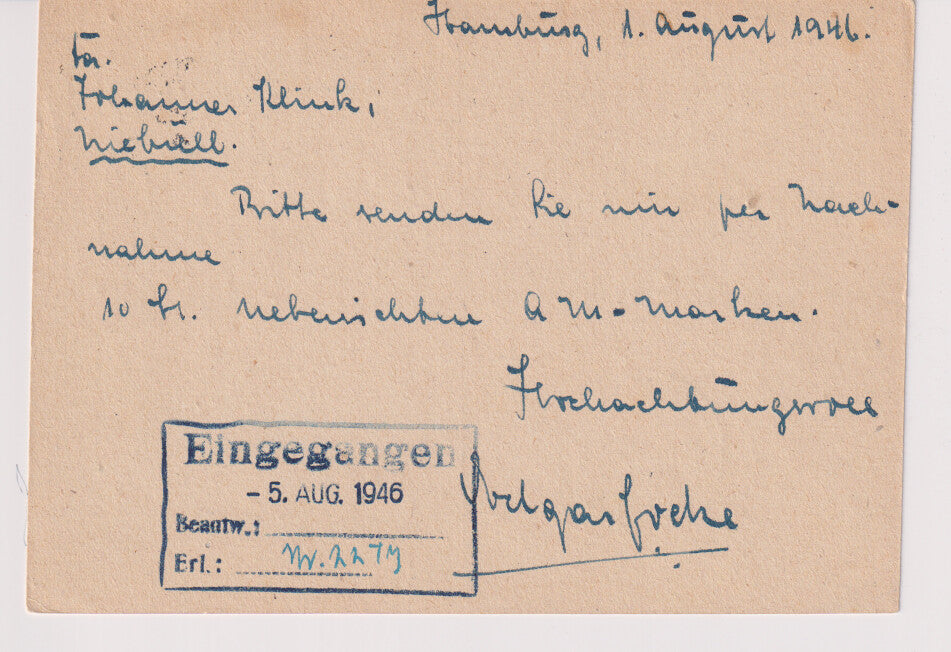 Hamburg, 1. August 1946.
Fa.
Johannes Klink,
Niebüll.
Bitte senden Sie mir per Nach-
nahme
10 St. AM-Marken.
Hochachtungsvoll
Eingegangen
- 5. AUG. 1946
Beantw.:
Erl.: Nr. 2279